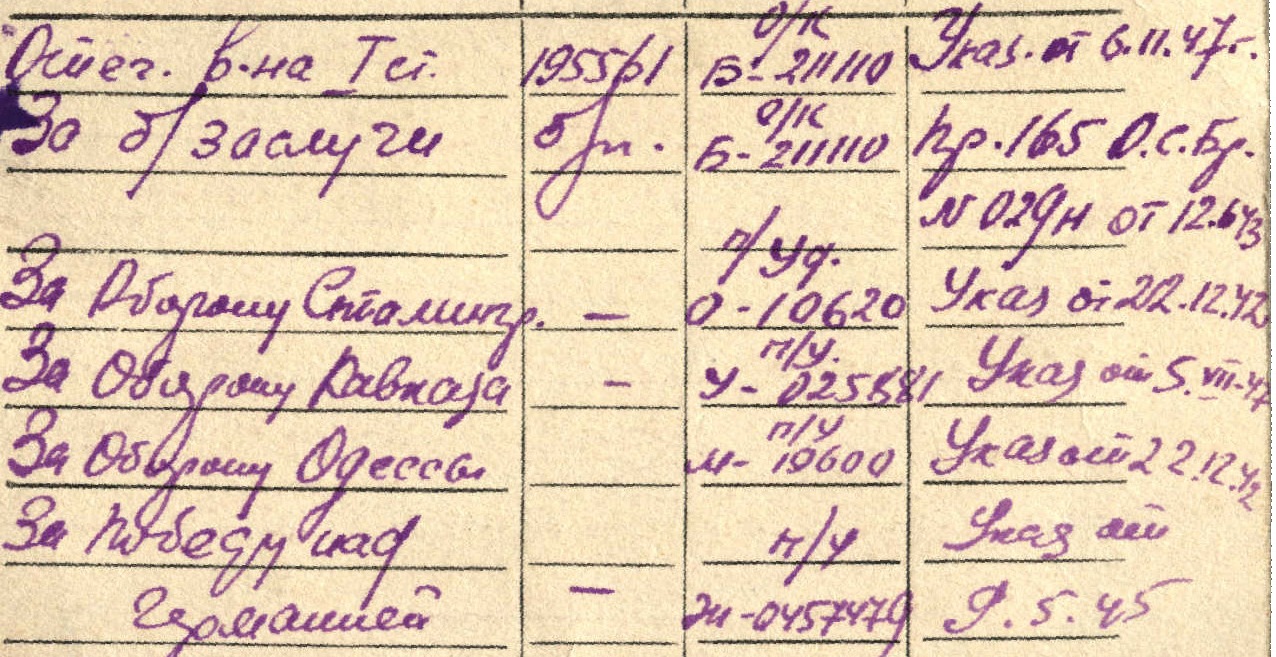 о/к
Отеч. в-на I ст. 195561 Б-211110 Указ. от 6.11.47г.
о/к
За б/заслуги б/н. Б-211110 пр.165 О.С.Бр.
N 029н от 12.6.43
п/уд.
За Оборону Сталингр. — О-10620 Указ от 22.12.42
п/у.
За Оборону Кавказа — У-025881 Указ от 5.VII-47
п/у
За Оборону Одессы М-10600 Указ от 22.12.42
За Победу над п/у Указ от
Германией — Ж-0457479 9.5.45